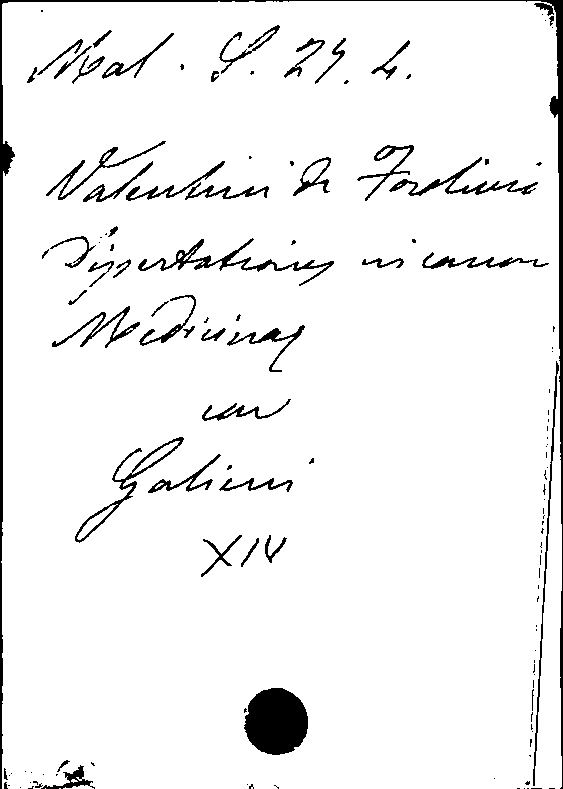 Mal. S. 27. 4.
Valentini de Forlivii
Dissertationes in canon
Medicinae
Galieni
XIV